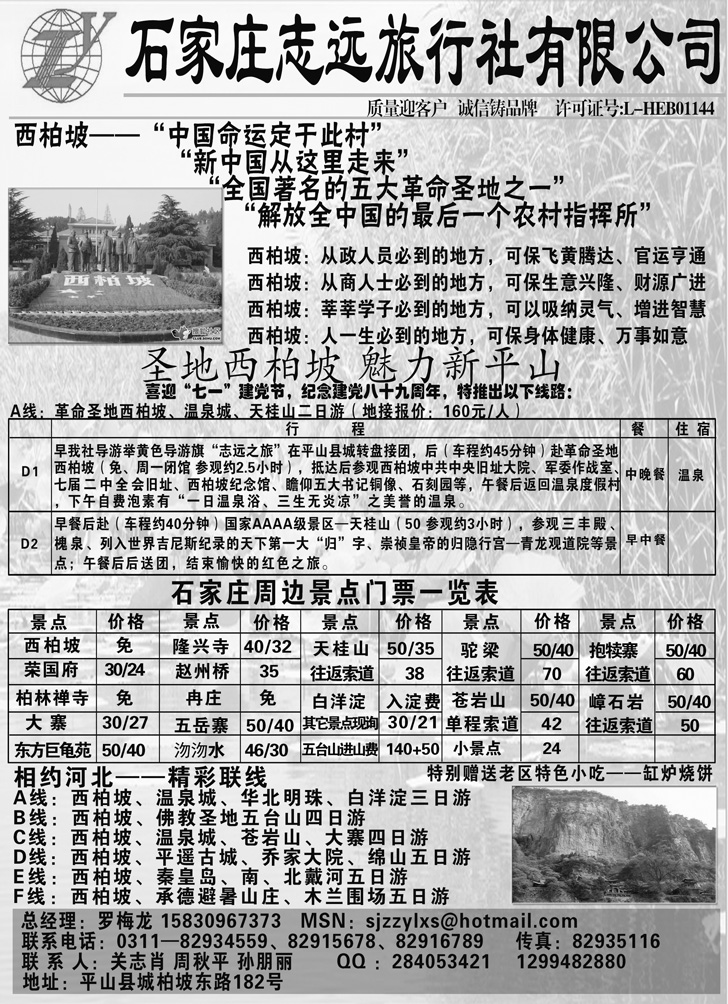 石家庄志远旅行社有限公司
质量迎客户 诚信铸品牌 许可证号:L-HEB01144
西柏坡——“中国命运定于此村”
“新中国从这里走来”
“全国著名的五大革命圣地之一”
“解放全中国的最后一个农村指挥所”
西柏坡
西柏坡：从政人员必到的地方，可保飞黄腾达、官运亨通
西柏坡：从商人士必到的地方，可保生意兴隆、财源广进
西柏坡：莘莘学子必到的地方，可以吸纳灵气、增进智慧
西柏坡：人一生必到的地方，可保身体健康、万事如意
圣地西柏坡 魅力新平山
喜迎“七一”建党节，纪念建党八十九周年，特推出以下线路：
A线：革命圣地西柏坡、温泉城、天桂山二日游（地接报价：160元/人）
行 程 餐 住宿
D1 早我社导游举黄色导游旗“志远之旅”在平山县城转盘接团，后（车程约45分钟）赴革命圣地
西柏坡（免、周一闭馆 参观约2.5小时），抵达后参观西柏坡中共中央旧址大院、军委作战室、
七届二中全会旧址、西柏坡纪念馆、瞻仰五大书记铜像、石刻园等，午餐后返回温泉度假村
，下午自费泡素有“一日温泉浴、三生无炎凉”之美誉的温泉。 中晚餐 温泉
D2 早餐后赴（车程约40分钟）国家AAAA级景区—天桂山（50 参观约3小时），参观三丰殿、
槐泉、列入世界吉尼斯纪录的天下第一大“归”字、崇祯皇帝的归隐行宫—青龙观道院等景
点；午餐后后送团，结束愉快的红色之旅。 早中餐
石家庄周边景点门票一览表
景点 价格 景点 价格 景点 价格 景点 价格 景点 价格
西柏坡 免 隆兴寺 40/32 天桂山 50/35 驼梁 50/40 抱犊寨 50/40
荣国府 30/24 赵州桥 35 往返索道 38 往返索道 70 往返索道 60
柏林禅寺 免 冉庄 免 白洋淀 入淀费 苍岩山 50/40 嶂石岩 50/40
大寨 30/27 五岳寨 50/40 其它景点现询 30/21 单程索道 42 往返索道 50
东方巨龟苑 50/40 沕沕水 46/30 五台山进山费 140+50 小景点 24
相约河北——精彩联线 特别赠送老区特色小吃——缸炉烧饼
A线：西柏坡、温泉城、华北明珠、白洋淀三日游
B线：西柏坡、佛教圣地五台山四日游
C线：西柏坡、温泉城、苍岩山、大寨四日游
D线：西柏坡、平遥古城、乔家大院、绵山五日游
E线：西柏坡、秦皇岛、南、北戴河五日游
F线：西柏坡、承德避暑山庄、木兰围场五日游
总经理：罗梅龙 15830967373 MSN：sjzzylxs@hotmail.com
联系电话：0311—82934559、82915678、82916789 传真：82935116
联系人：关志肖 周秋平 孙朋丽 QQ：284053421 1299482880
地址：平山县城柏坡东路182号